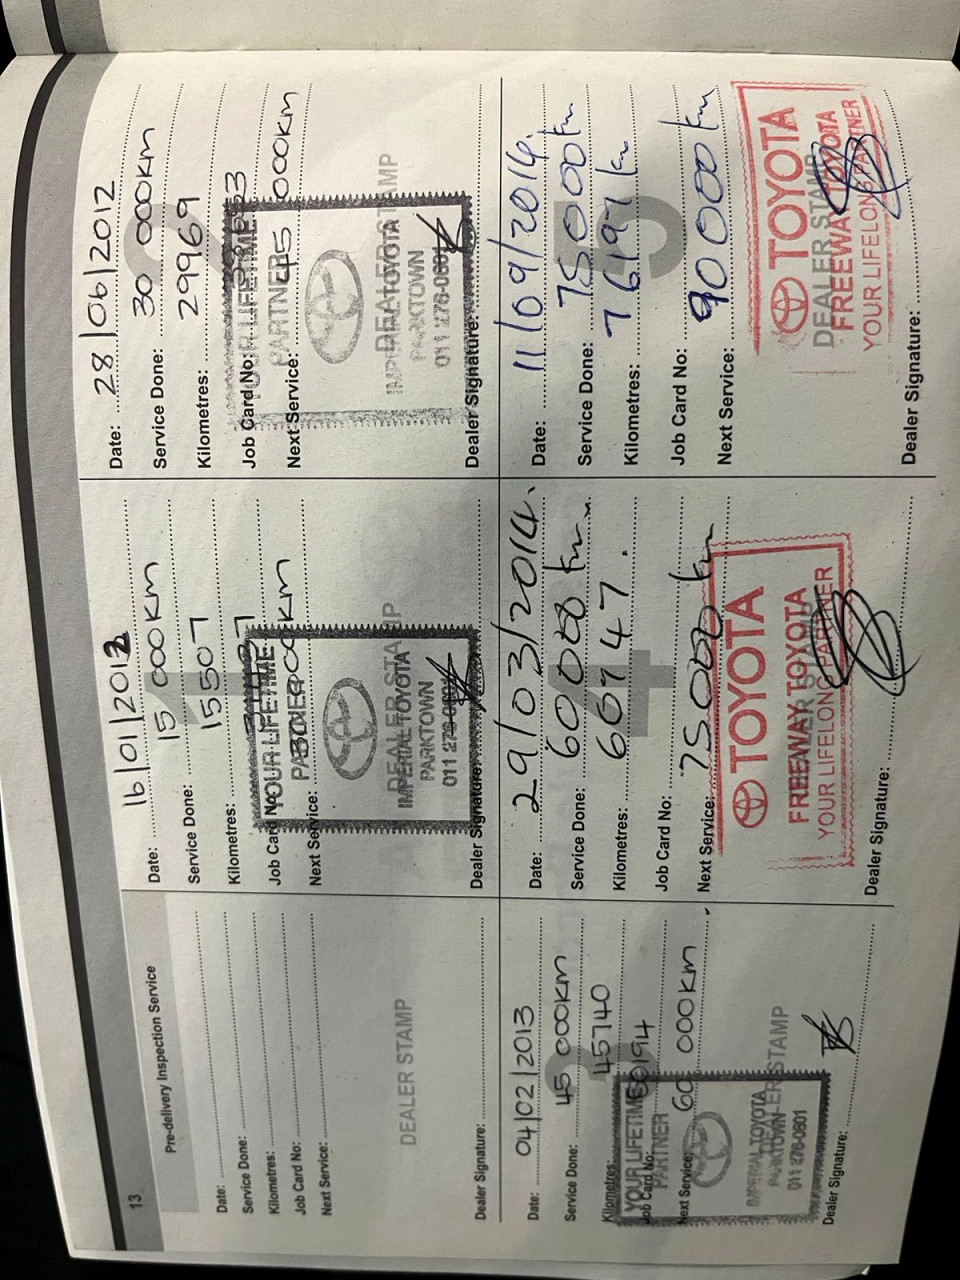 13
Pre-delivery Inspection Service
Date:
Service Done:
Kilometres:
Job Card No:
Next Service:
DEALER STAMP
Dealer Signature:
1
Date: 16/01/2012
Service Done: 15 000KM
Kilometres: 15507
Job Card No:
Next Service: 30 000KM
YOUR LIFETIME
PARTNER
DEALER STAMP
IMPERIAL TOYOTA
PARKTOWN
011 276-0601
Dealer Signature:
2
Date: 28/06/2012
Service Done: 30 000KM
Kilometres: 29969
Job Card No:
Next Service: 45 000KM
YOUR LIFETIME
PARTNER
DEALER STAMP
IMPERIAL TOYOTA
PARKTOWN
011 276-0601
Dealer Signature:
3
Date: 04/02/2013
Service Done: 45 000KM
Kilometres: 45740
Job Card No: 60194
Next Service: 60 000KM
YOUR LIFETIME
PARTNER
DEALER STAMP
IMPERIAL TOYOTA
PARKTOWN
011 276-0601
Dealer Signature:
4
Date: 29/03/2014.
Service Done: 60000 km
Kilometres: 60747.
Job Card No:
Next Service: 75000 km
TOYOTA
DEALER STAMP
FREEWAY TOYOTA
YOUR LIFELONG PARTNER
Dealer Signature:
5
Date: 11/09/2014.
Service Done: 75000 km
Kilometres: 76197 km
Job Card No:
Next Service: 90000 km
TOYOTA
DEALER STAMP
FREEWAY TOYOTA
YOUR LIFELONG PARTNER
Dealer Signature: